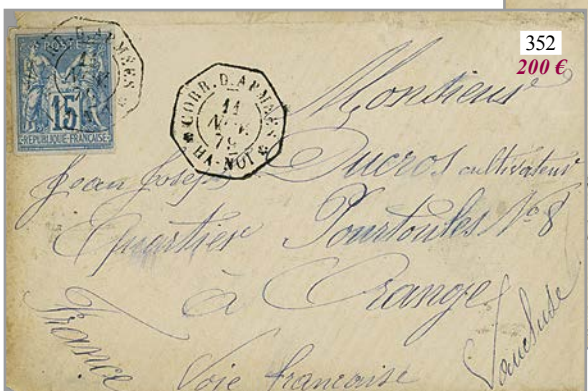 352
200 €
15
REPUBLIQUE FRANCAISE
CORR. D. ARMÉES
11
NOV.
79
HA-NOI
Monsieur
Jean Joseph Ducros cultivateur
Quartier Pourtoules No 8
à Orange
Vaucluse
France
Voie française